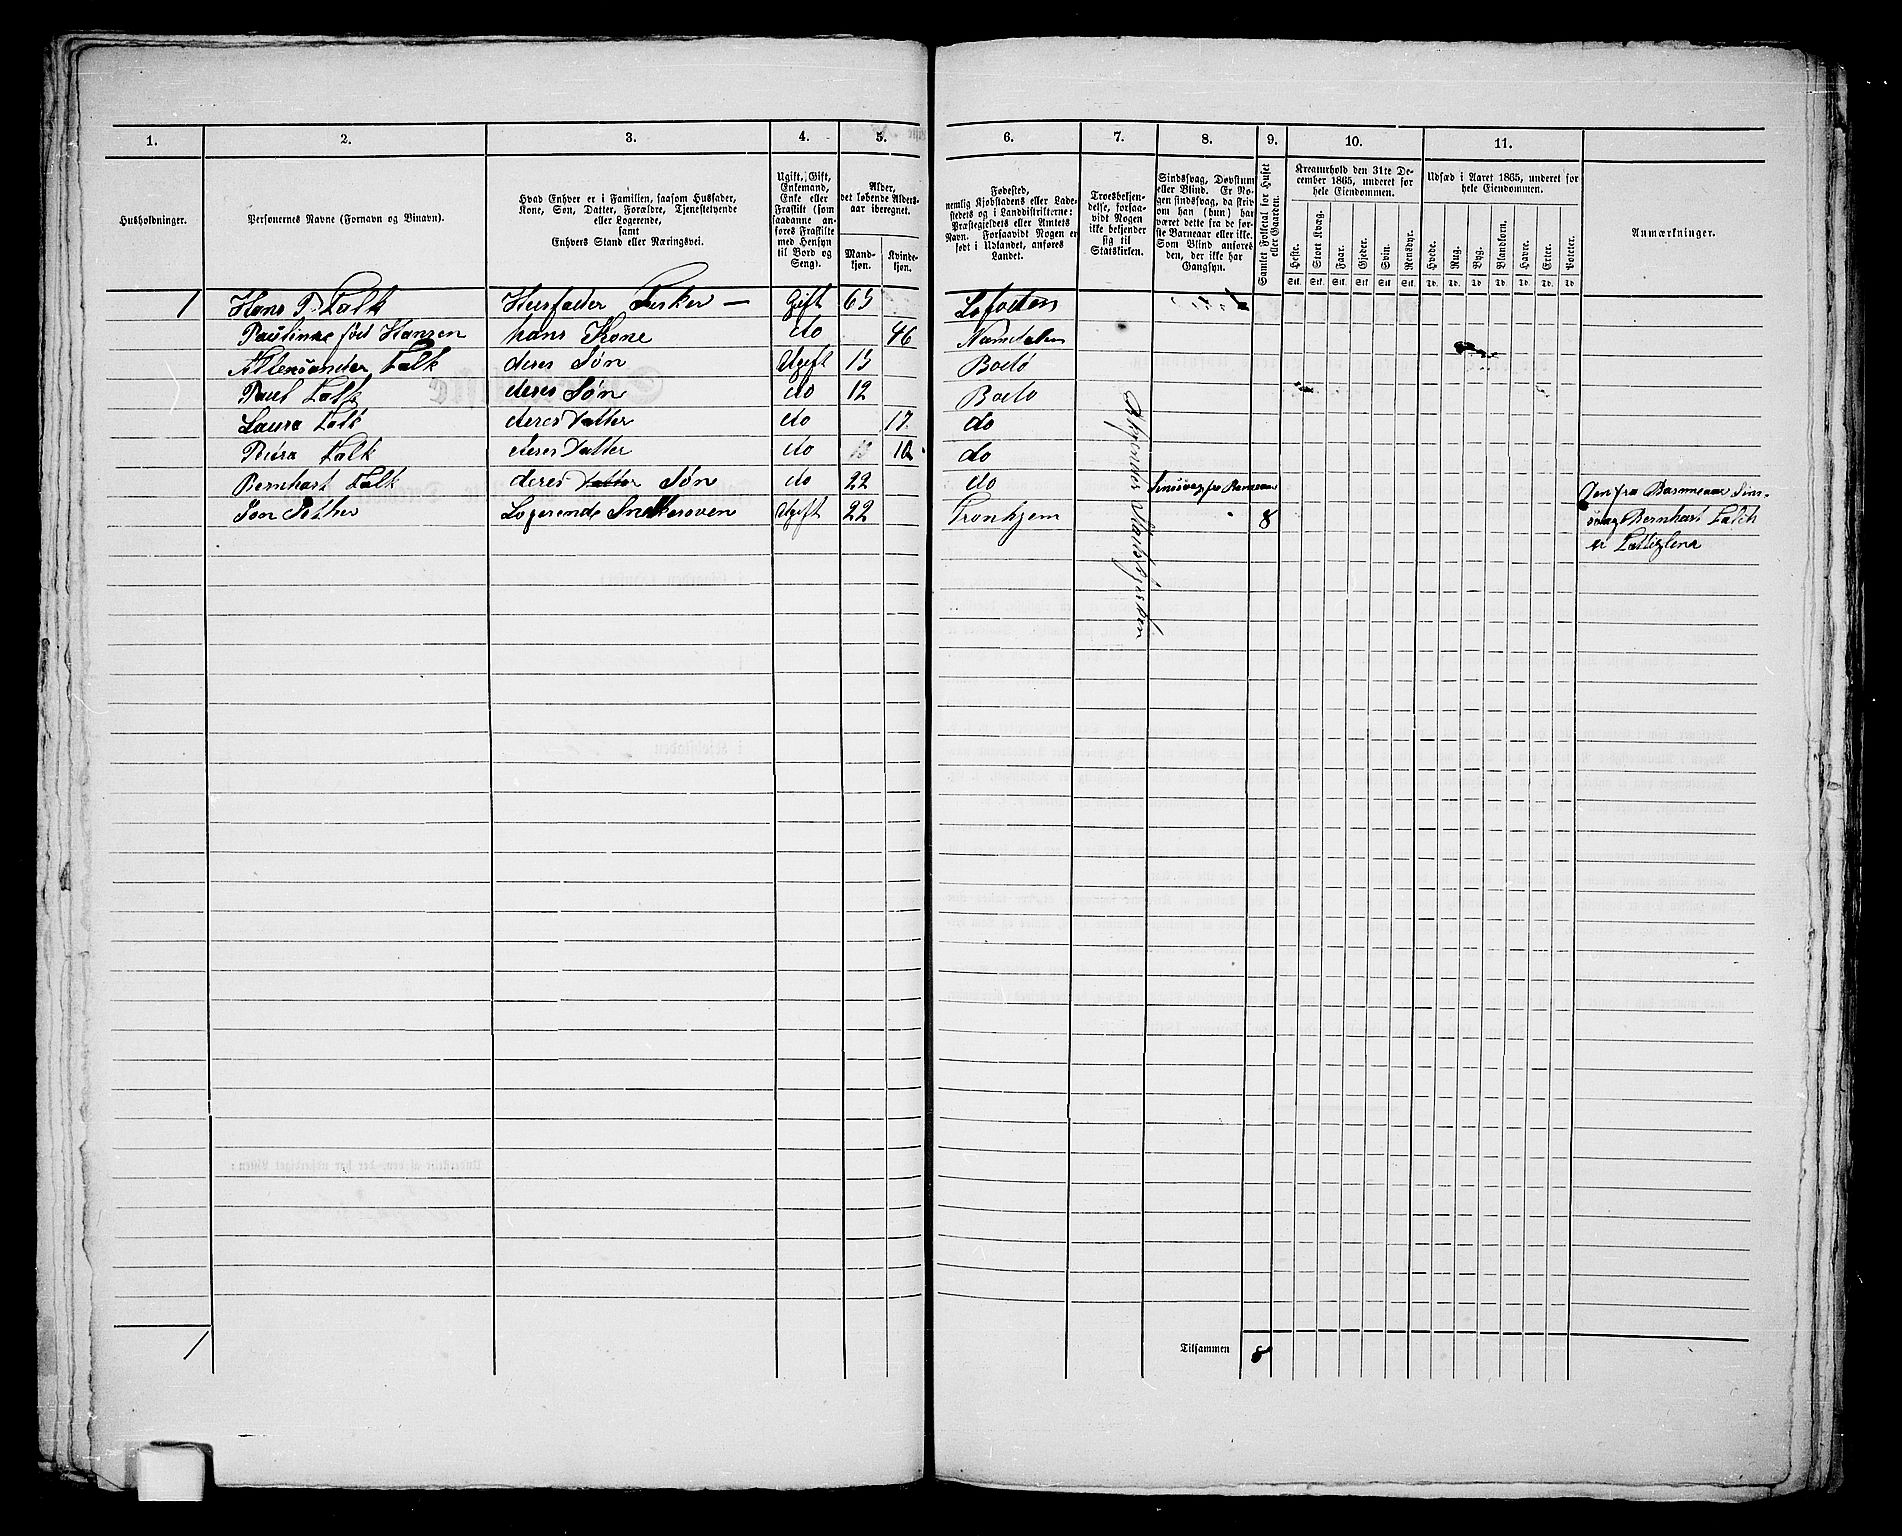 1. 2. 3. 4. 5. 6. 7. 8. 9. 10. 11.
Husholdninger.
Personernes Navne (Fornavn og Binavn).
Hvad Enhver er i Familien, saasom Husfader,
Kone, Søn, Datter, Forældre, Tjenestetyende
eller Logerende,
samt
Enhvers Stand eller Næringsvei.
Ugift, Gift,
Enkemand,
Enke eller
Fraskilt (som
saadanne an-
føres Fraskilte
med Hensyn
til Bord og
Seng).
Alder,
det løbende Alders-
aar iberegnet.
Mand-
kjøn.
Kvinde-
kjøn.
Fødested,
nemlig Kjøbstadens eller Lade-
stedets og i Landdistrikterne:
Præstegjeldets eller Amtets
Navn. Forsaavidt Nogen er
født i Udlandet, anføres
Landet.
Troesbekjen-
delse, forsaa-
vidt Nogen
ikke bekjender
sig til
Statskirken.
Sindssvag, Døvstum
eller Blind. Er No-
gen sindssvag, da skriv
om han (hun) har
været dette fra de før-
ste Barneaar eller ikke.
Som Blind anføres
den, der ikke har
Gangsyn.
Samlet Folketal for Huset
eller Gaarden.
Kreaturhold den 31te De-
cember 1865, underet for
hele Eiendommen.
Heste. Stort Kvæg. Faar. Gjeder. Svin. Rensdyr.
Stk. Stk. Stk. Stk. Stk. Stk.
Udsæd i Aaret 1865, underet for
hele Eiendommen.
Hvede. Rug. Byg. Blandkorn. Havre. Erter. Poteter.
Td. Td. Td. Td. Td. Td. Td.
Anmærkninger.
1 Hans P. Falk Husfader Fisker — Gift 63 Lofoden
Paulinne fød Hansen hans Kone do 46 Namdalen
Alleksander Falk deres Søn Ugift 15 Bodø
Paul Falk deres Søn do 12 Bodø
Laura Falk deres Datter do 17 do
Falk deres Datter do 10 do
Bernhart Falk deres Datter Søn do 22 do Sinsvag fra Barneaar
Jon Pether Logerende Snekkersven Ugift 22 Tronhjem 8
Den fra Barneaar Sins-
svag Bernhart Falch
er
Statskirken
1
Tilsammen 8